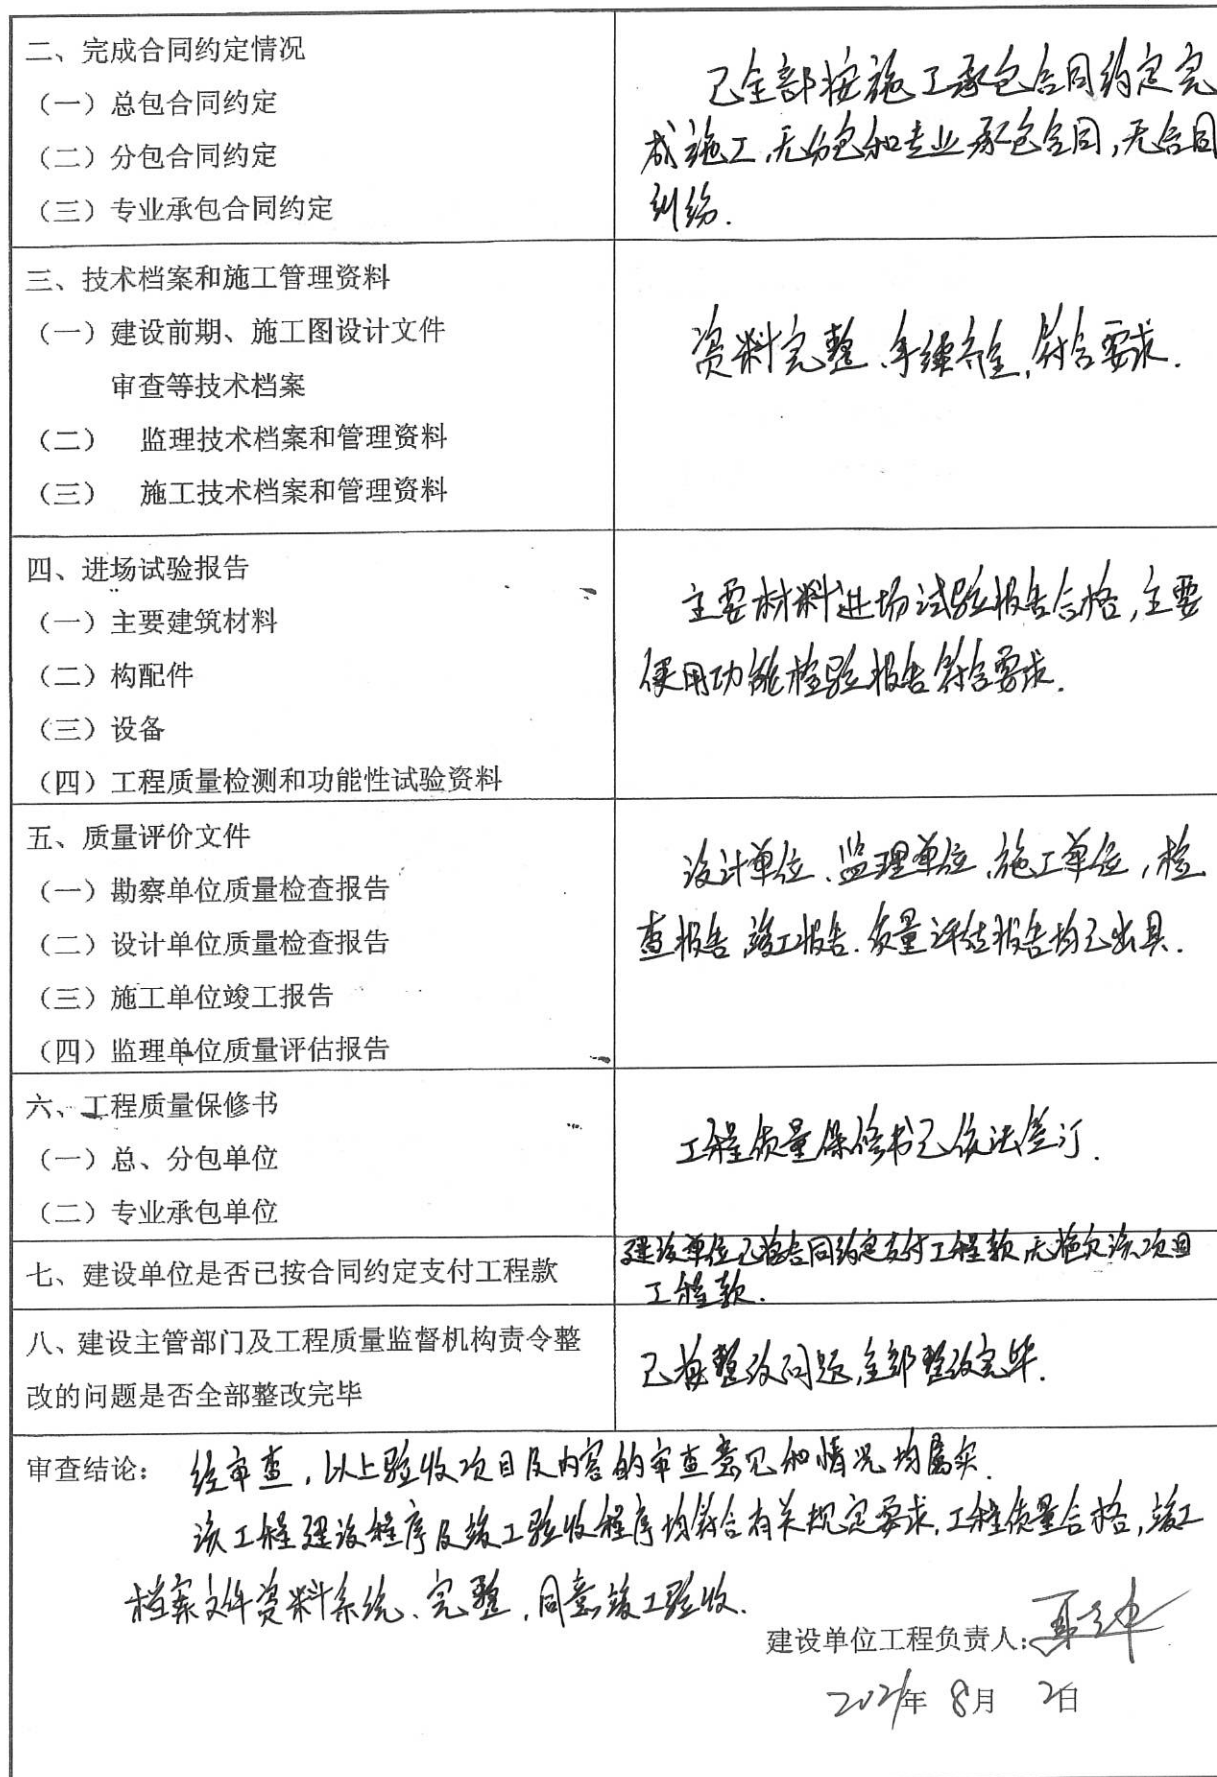 二、完成合同约定情况
（一）总包合同约定
（二）分包合同约定
（三）专业承包合同约定
已全部按施工承包合同约定完
成施工,无分包和专业承包合同,无合同
纠纷.
三、技术档案和施工管理资料
（一）建设前期、施工图设计文件
审查等技术档案
（二） 监理技术档案和管理资料
（三） 施工技术档案和管理资料
资料完整、手续齐全,符合要求.
四、进场试验报告
（一）主要建筑材料
（二）构配件
（三）设备
（四）工程质量检测和功能性试验资料
主要材料进场试验报告合格,主要
使用功能检验报告符合要求.
五、质量评价文件
（一）勘察单位质量检查报告
（二）设计单位质量检查报告
（三）施工单位竣工报告
（四）监理单位质量评估报告
设计单位、监理单位、施工单位,检
查报告、竣工报告、质量评估报告均已出具.
六、工程质量保修书
（一）总、分包单位
（二）专业承包单位
工程质量保修书已依法签订.
七、建设单位是否已按合同约定支付工程款
建设单位已按合同约定支付工程款,无拖欠该项目
工程款.
八、建设主管部门及工程质量监督机构责令整
改的问题是否全部整改完毕
已按整改问题,全部整改完毕.
审查结论： 经审查,以上验收项目及内容的审查意见和情况均属实.
该工程建设程序及竣工验收程序均符合有关规定要求,工程质量合格,竣工
档案文件资料系统、完整,同意竣工验收.
建设单位工程负责人:
2021年 8月 2日